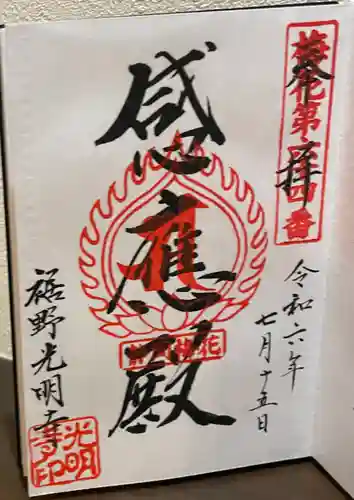 梅花第四四番
奉拝
令和六年
七月十五日
感應殿
裾野光明寺
光明寺印